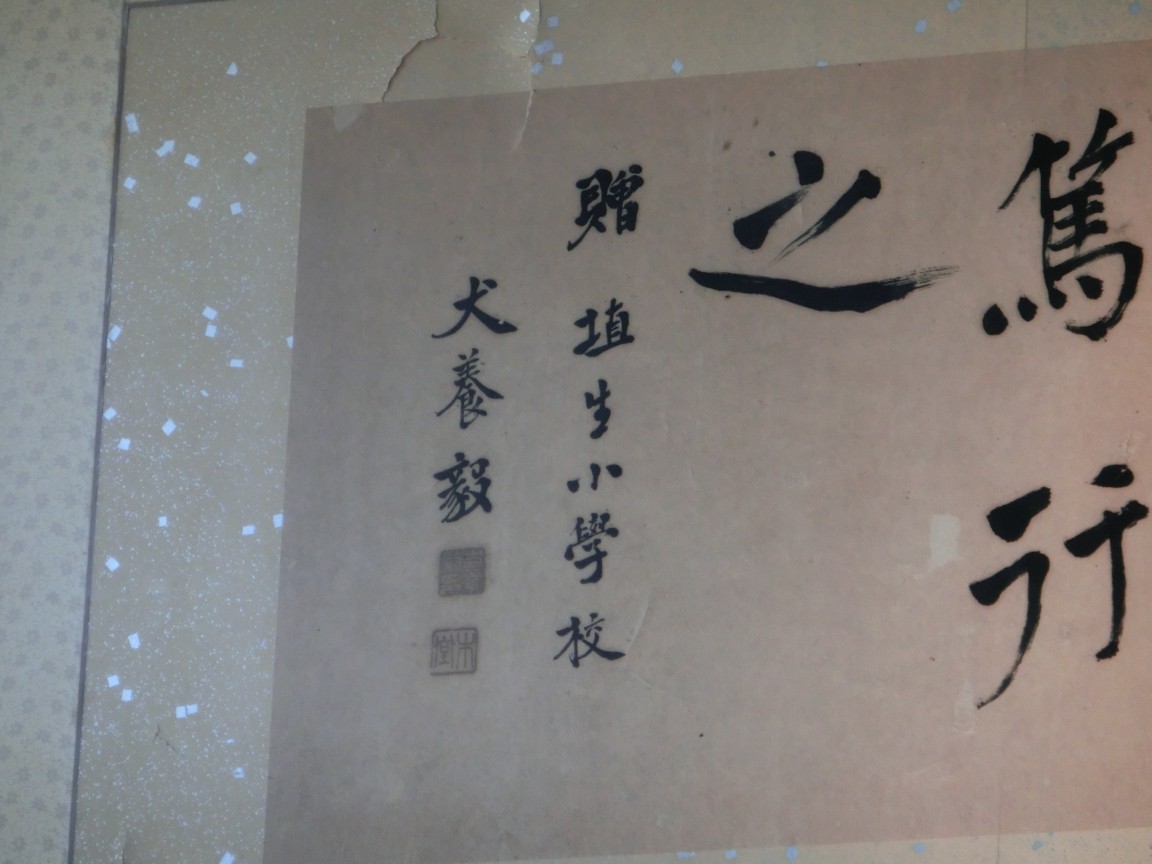 篤行
之
贈埴生小學校
犬養毅
木堂